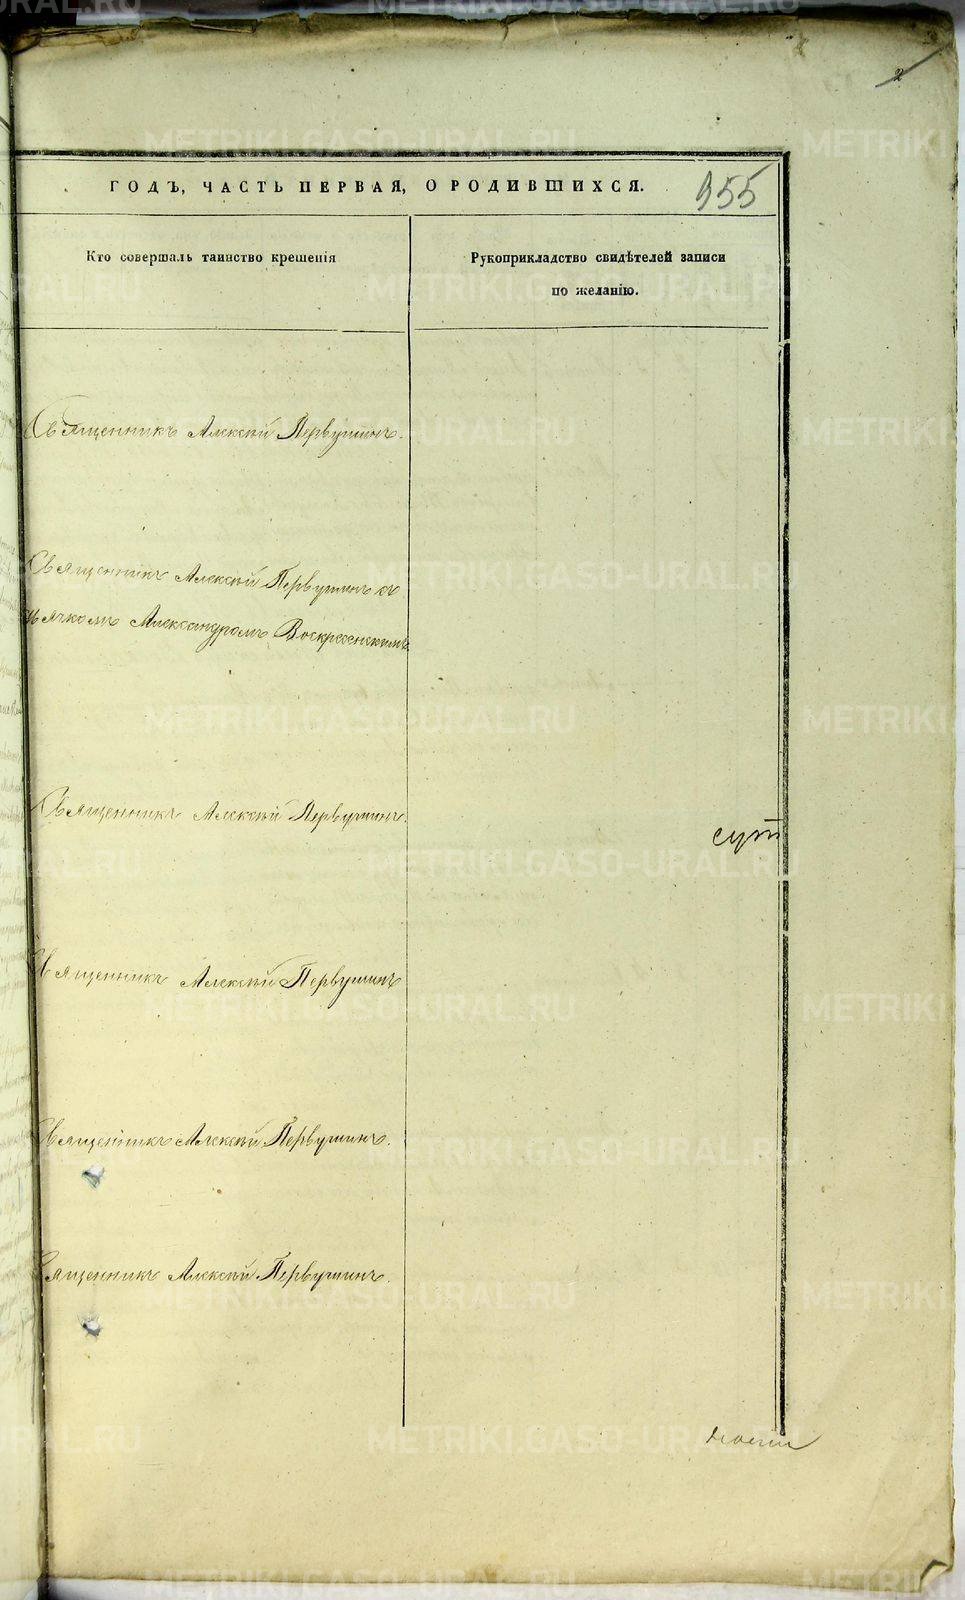 2
ГОДЪ, ЧАСТЬ ПЕРВАЯ, О РОДИВШИХСЯ.
955
Кто совершалъ таинство крещенія
Рукоприкладство свидѣтелей записи
по желанію.
Священникъ Алексѣй Первушинъ.
Священникъ Алексѣй Первушинъ съ
дьячкомъ Александромъ Воскресенскимъ
Священникъ Алексѣй Первушинъ.
Священникъ Алексѣй Первушинъ
Священникъ Алексѣй Первушинъ.
Священникъ Алексѣй Первушинъ.
METRIKI.GASO-URAL.RU